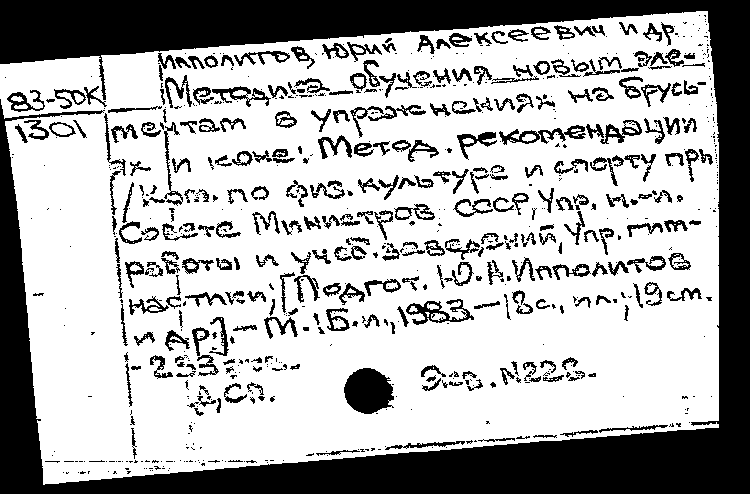 Ипполитов, Юрий Алексеевич и др.
83-5DK Методика обучения новым эле-
1301 ментам в упражнениях на брусь-
ях и коне: Метод. рекомендации
/Ком. по физ. культуре и спорту при
Совете Министров СССР, Упр. н.-и.
работы и учеб. заведений, Упр. гим-
настики; [Подгот. Ю.А. Ипполитов
и др.].- М.: Б.и., 1983.- 18с., ил.; 19см.
-233
Д, Сп. Экз. N228.